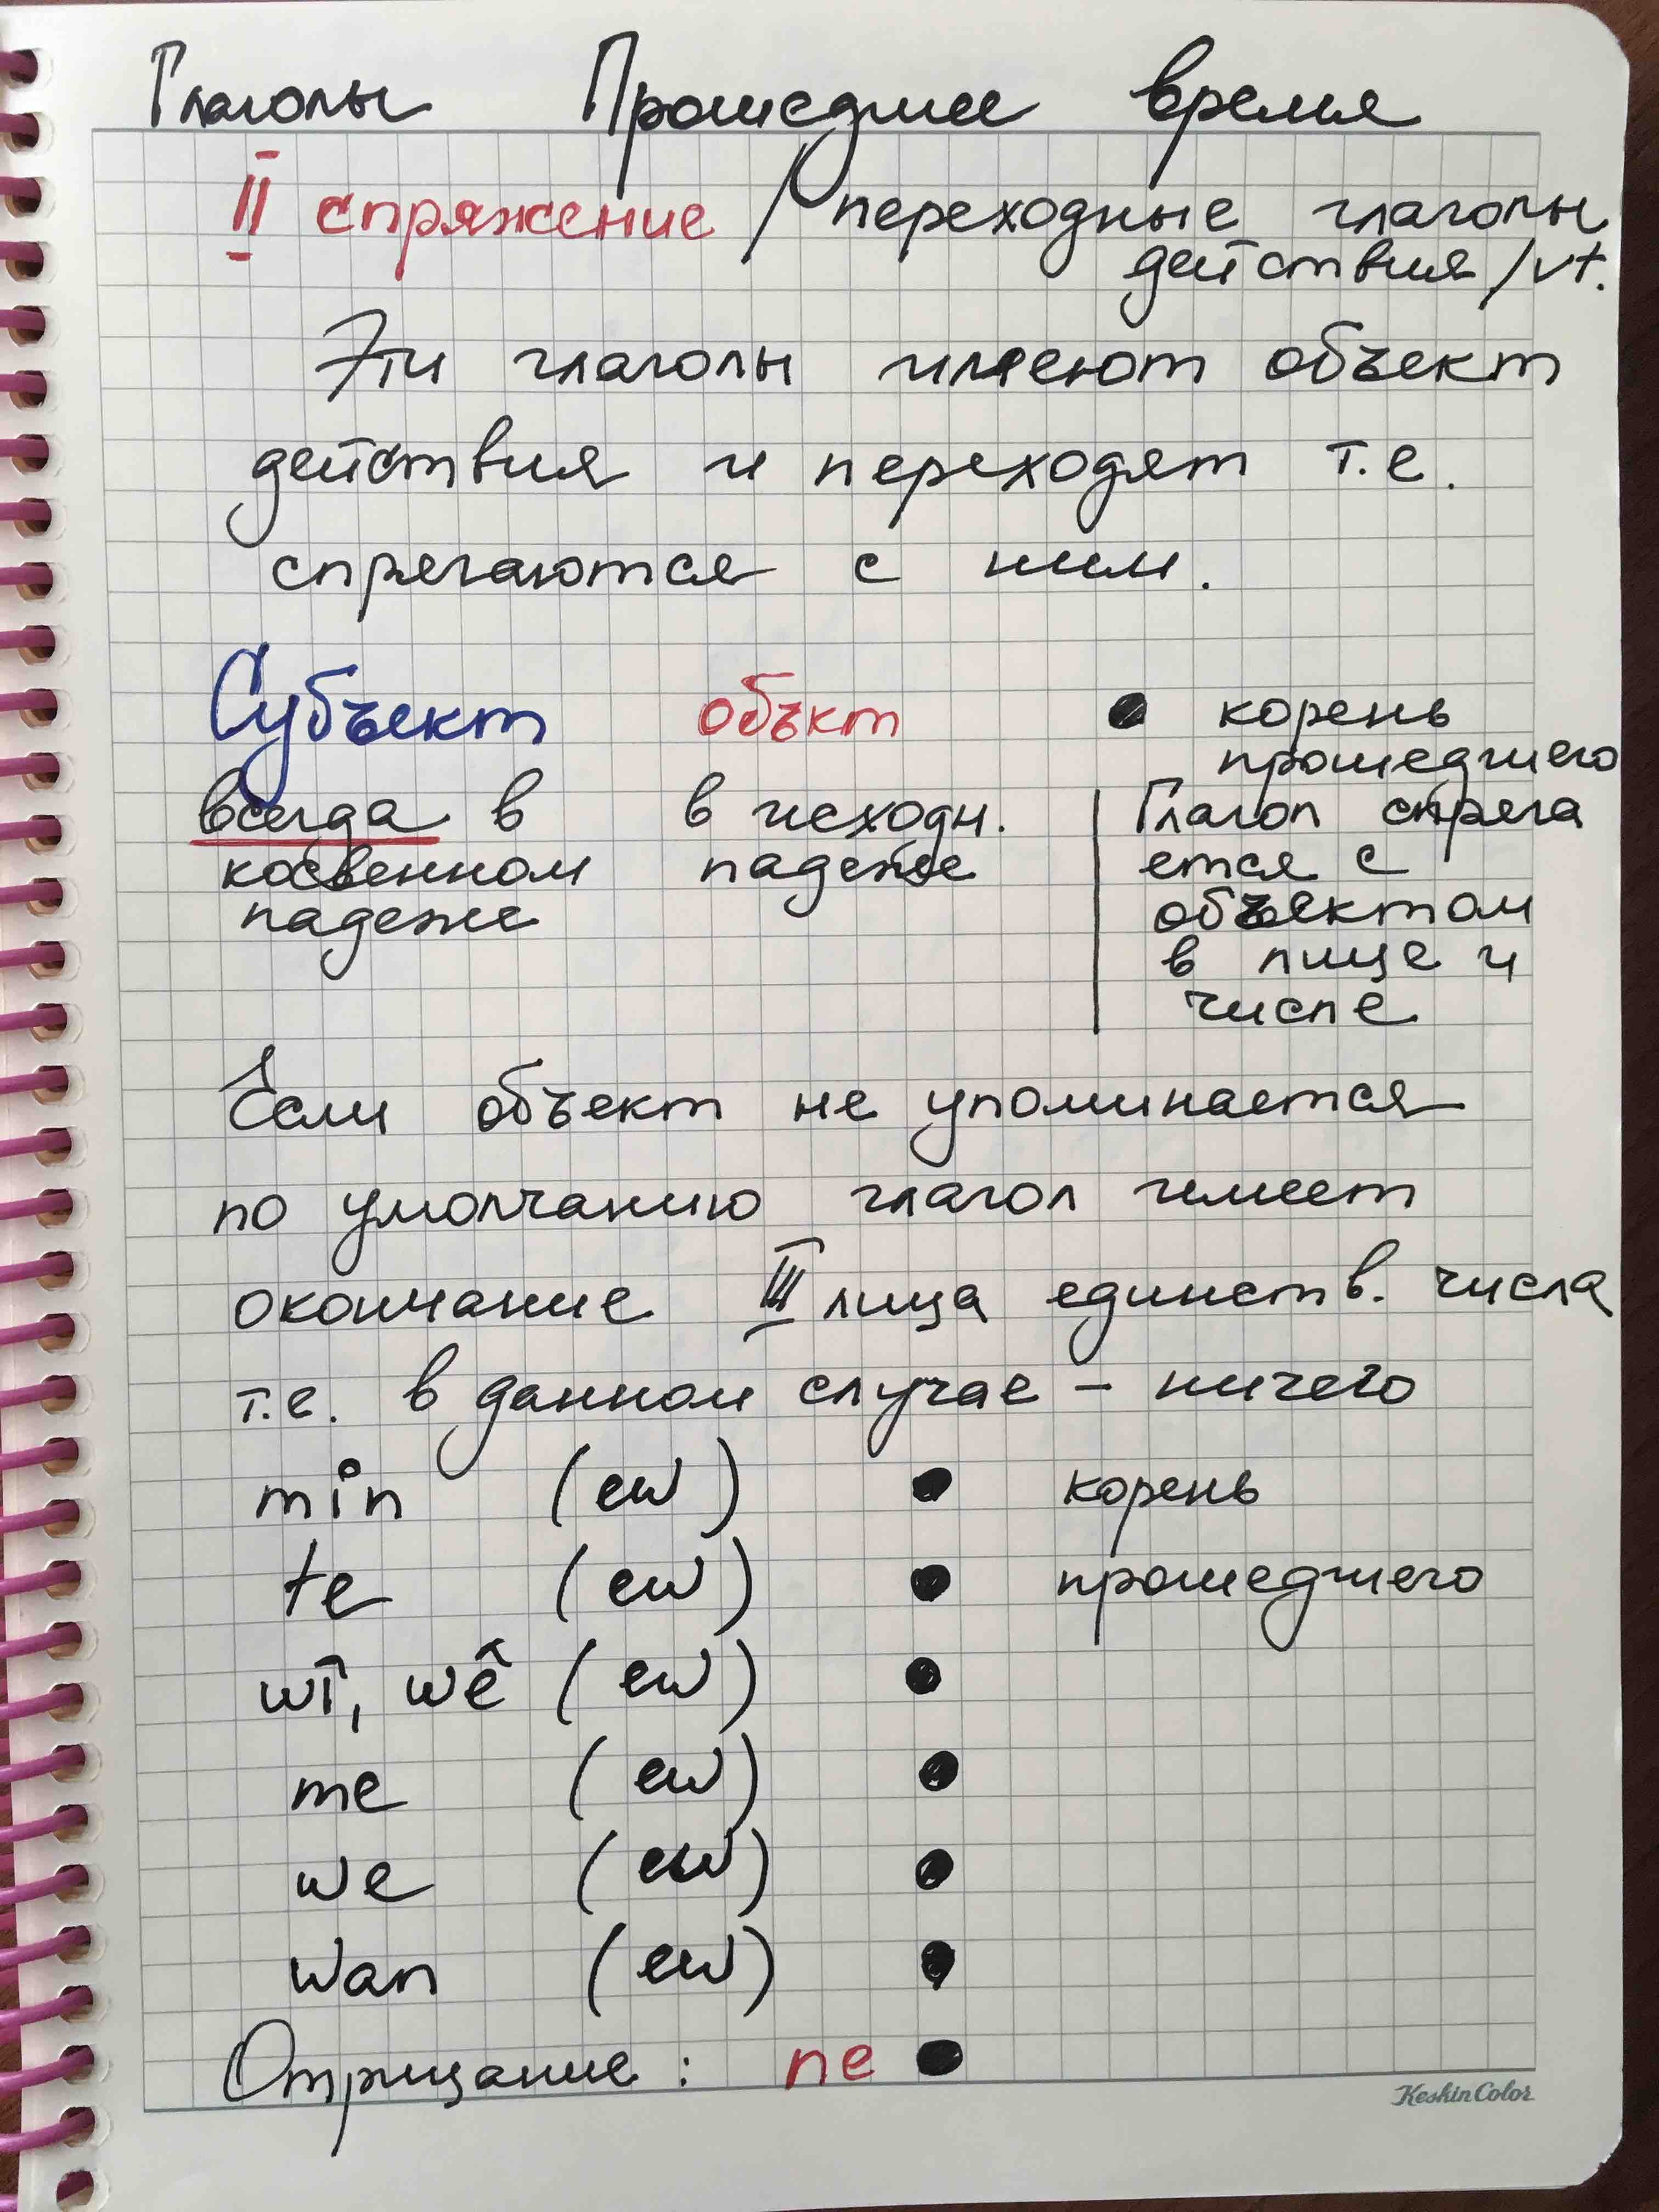 Глаголы Прошедшее время
II спряжение / переходные глаголы
действия / vt.
Эти глаголы имеют объект
действия и переходят т.е.
спрягаются с ним.
Субъект объкт ● корень
прошедшего
всегда в в исходн. Глагол спряга
косвенном падеже ется с
падеже объектом
в лице и
числе
Если объект не упоминается
по умолчанию глагол имеет
окончание III лица единств. числа
т.е. в данном случае – ничего
min (ew) ● корень
te (ew) ● прошедшего
wî, wê (ew) ●
me (ew) ●
we (ew) ●
wan (ew) ●
Отрицание: ne ●
KeskinColor